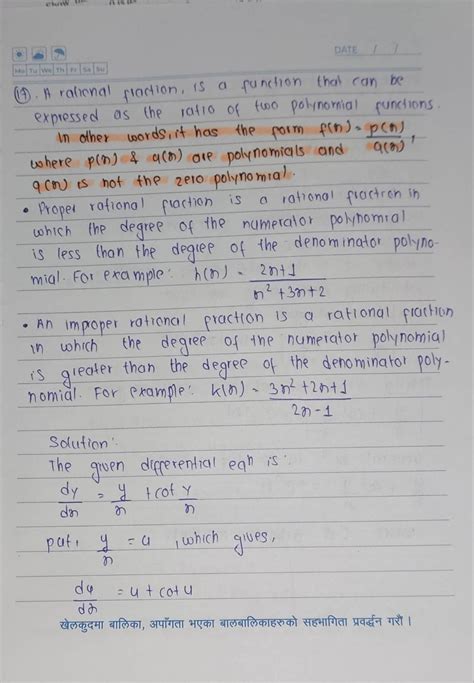 DATE / /
Mo Tu We Th Fr Sa Su
(17). A rational fraction, is a function that can be
expressed as the ratio of two polynomial functions.
In other words, it has the form f(x) = p(x)/q(x),
where p(x) & q(x) are polynomials and
q(x) is not the zero polynomial.
• Proper rational fraction is a rational fraction in
which the degree of the numerator polynomial
is less than the degree of the denominator polyno-
mial. For example: h(x) = 2x+1 / x² + 3x + 2
• An improper rational fraction is a rational fraction
in which the degree of the numerator polynomial
is greater than the degree of the denominator poly-
nomial. For example: k(x) = 3x² + 2x + 1 / 2x - 1
Solution:
The given differential eqn is:
dy/dx = y/x + cot y/x
put, y/x = u, which gives,
du/dx = u + cot u
खेलकुदमा बालिका, अपाँगता भएका बालबालिकाहरुको सहभागिता प्रवर्द्धन गरौं ।